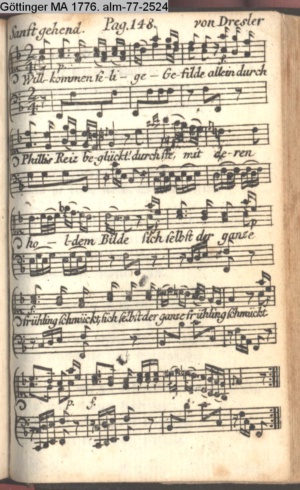 Göttinger MA 1776. alm-77-2524
Sanft gehend. Pag. 148. von Dresler
Will-kommen se-li-ge-Gefilde allein durch
Phillis Reiz be-glückt! durch sie, mit de-ren
ho-ldem Bilde sich selbst der ganze
frühling schmückt, sich selbst der ganze frühling schmückt
p. f.